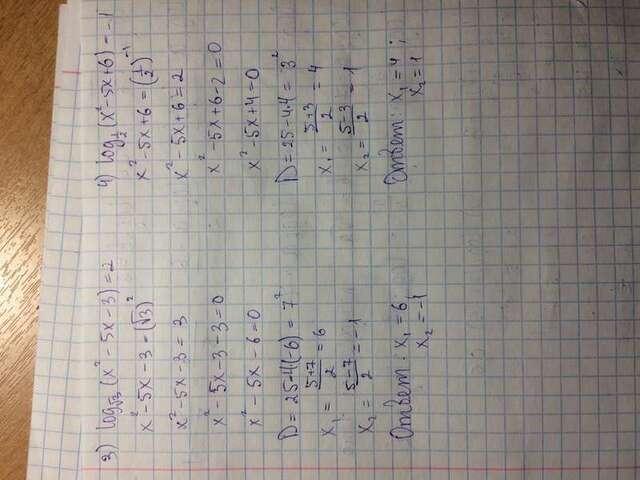 3) log√3 (x² - 5x - 3) = 2
x² - 5x - 3 = (√3)²
x² - 5x - 3 = 3
x² - 5x - 3 - 3 = 0
x² - 5x - 6 = 0
D = 25 - 4(-6) = 7²
x₁ = (5+7)/2 = 6
x₂ = (5-7)/2 = -1
Ответ: x₁ = 6;
x₂ = -1
4) log1/2 (x² - 5x + 6) = -1
x² - 5x + 6 = (1/2)⁻¹
x² - 5x + 6 = 2
x² - 5x + 6 - 2 = 0
x² - 5x + 4 = 0
D = 25 - 4·4 = 3²
x₁ = (5+3)/2 = 4
x₂ = (5-3)/2 = 1
Ответ: x₁ = 4;
x₂ = 1